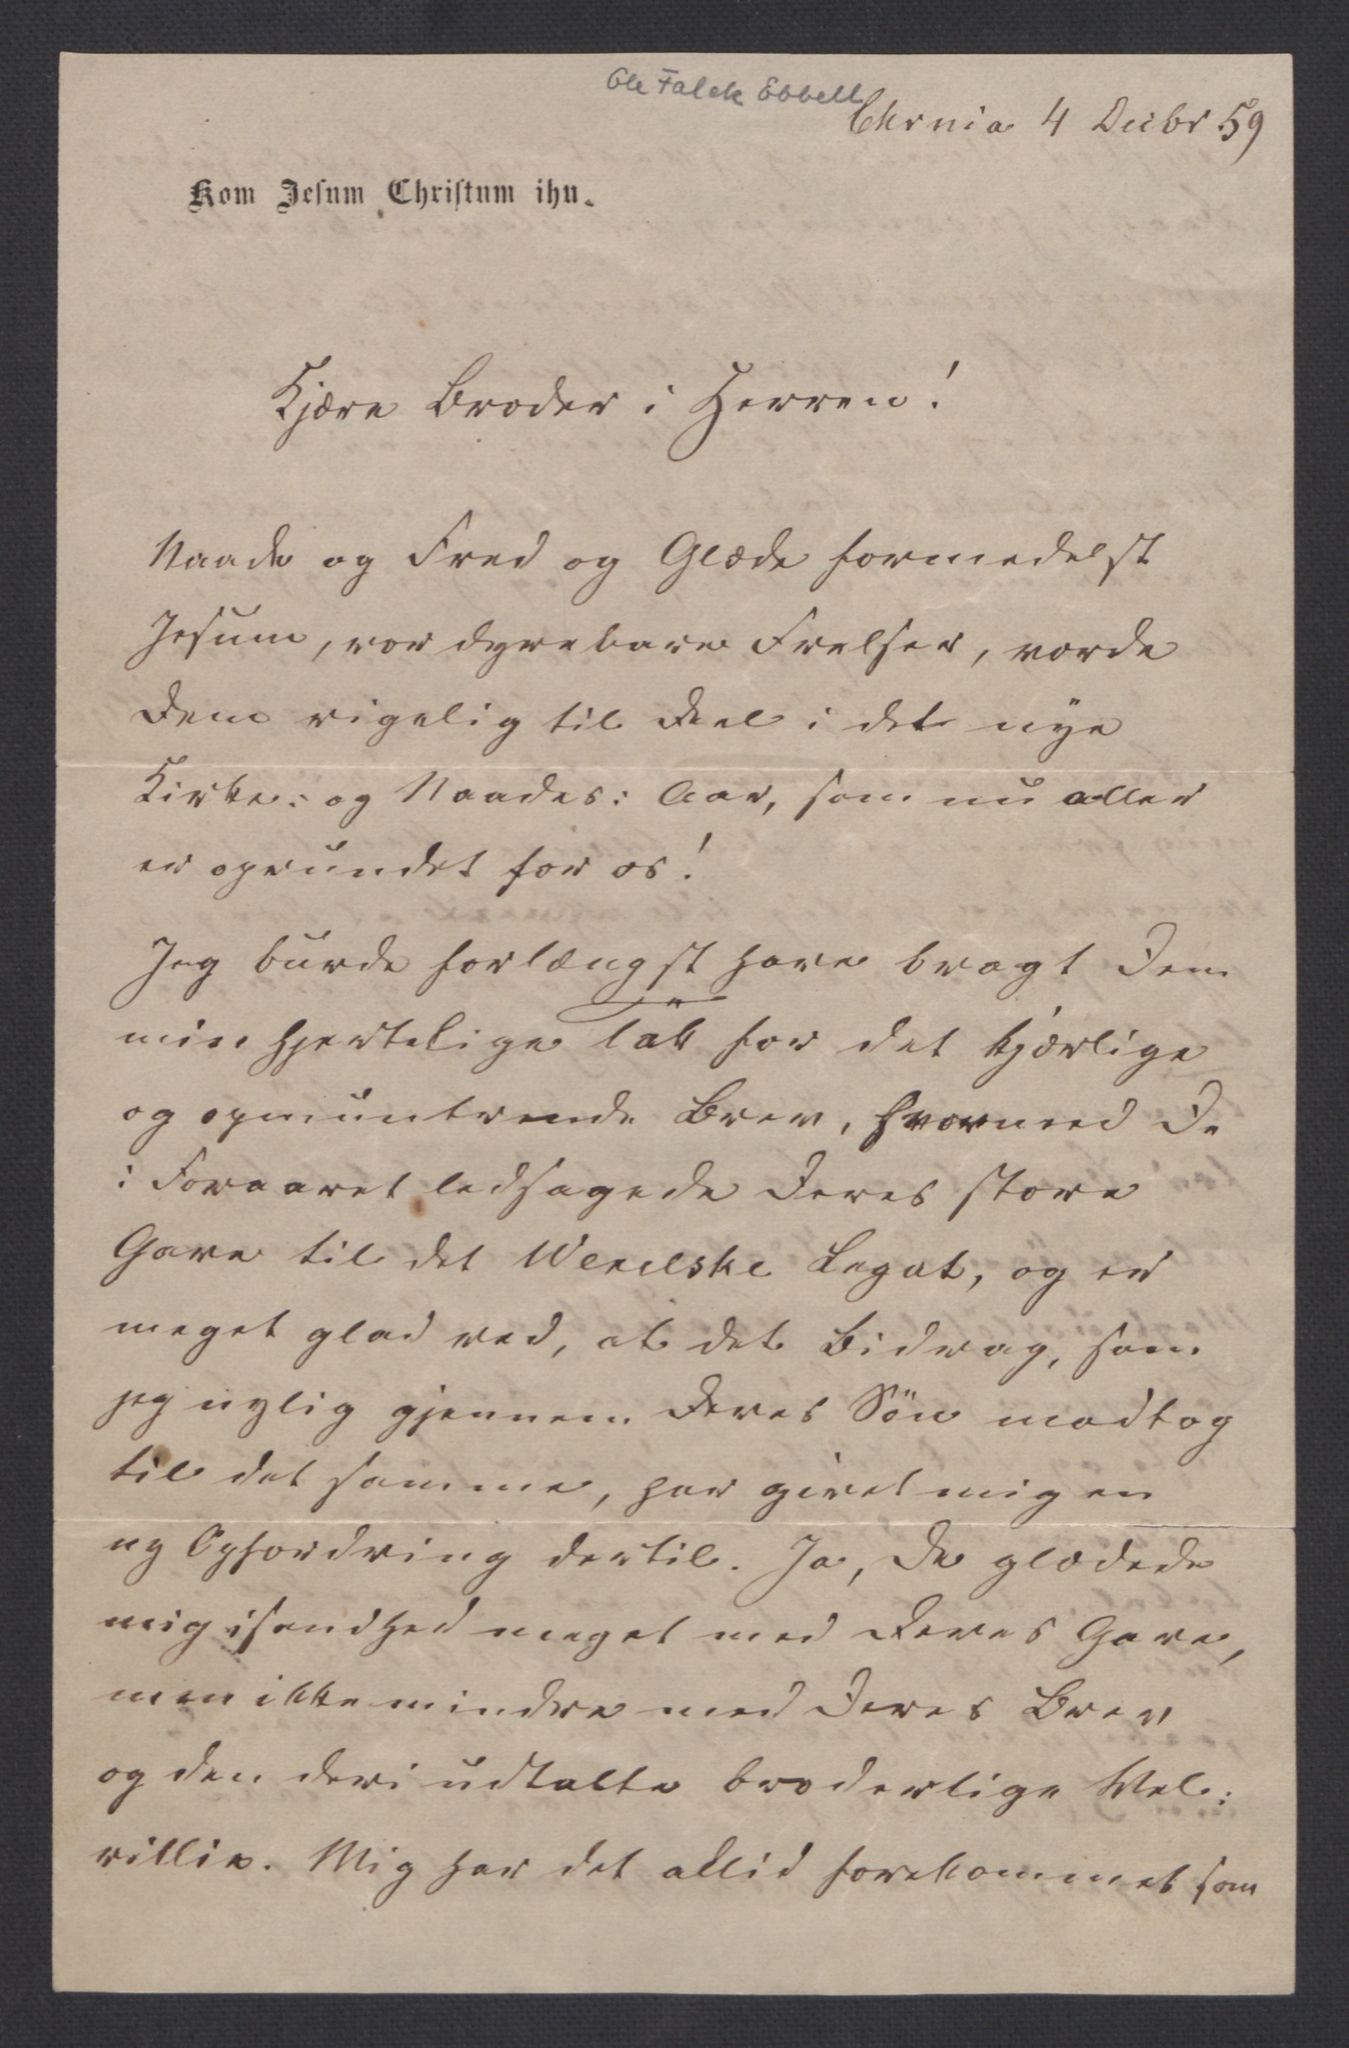 Ole Falck Ebbell
Chrnia 4 Decbr 59
Kom Jesum Christum ihu.
Kjære Broder i Herren!
Naade og Fred og Glæde formedelst
Jesum, vor dyrebare Frelser, vorde
Dem rigelig til Deel i det nye
Kirke: og Naades: Aar, som nu aller
er oprundet for os!
Jeg burde forlængst have bragt Dem
min hjertelige Tak for det kjærlige
og opmuntrende Brev, hvormed De
i Foraaret ledsagede Deres store
Gave til det Wexelske Legat, og er
meget glad ved, at det Bidrag, som
jeg nylig gjennem Deres Sön modtog
til det samme, har givet mig en
ny Opfordring dertil. Ja, De glædede
mig isandhed meget med Deres Gave,
men ikke mindre med Deres Brev
og den deri udtalte broderlige Vel:
villie. Mig har det altid forekommet som